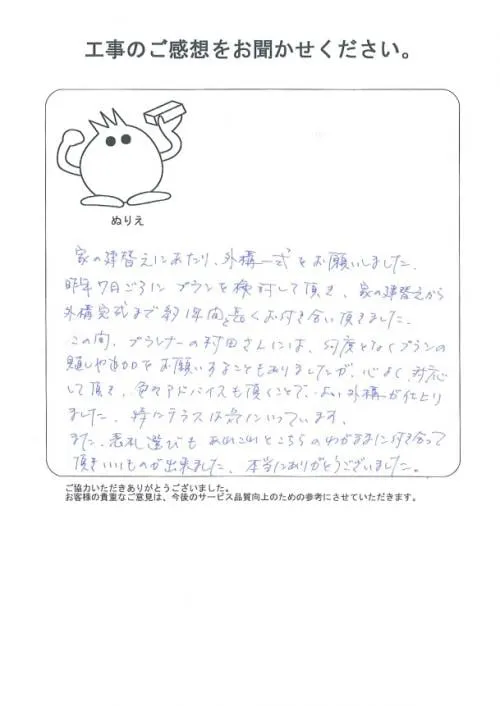 工事のご感想をお聞かせください。
ぬりえ
家の建替えにあたり、外構一式をお願いしました。
昨年7月ごろに プランを検討して頂き、家の建替えから
外構完成まで約1年間と長くお付き合い頂きました。
この間、プランナーの村田さんには、何度となくプランの
見直しや追加をお願いすることもありましたが、心よく対応
して頂き、色々アドバイスも頂くことで、よい外構が仕上り
ました。特にテラスは気にいっています。
また、表札選びも あれこれとこちらのわがままに付き合って
頂きいいものが出来ました。本当にありがとうございました。
ご協力いただきありがとうございました。
お客様の貴重なご意見は、今後のサービス品質向上のための参考にさせていただきます。